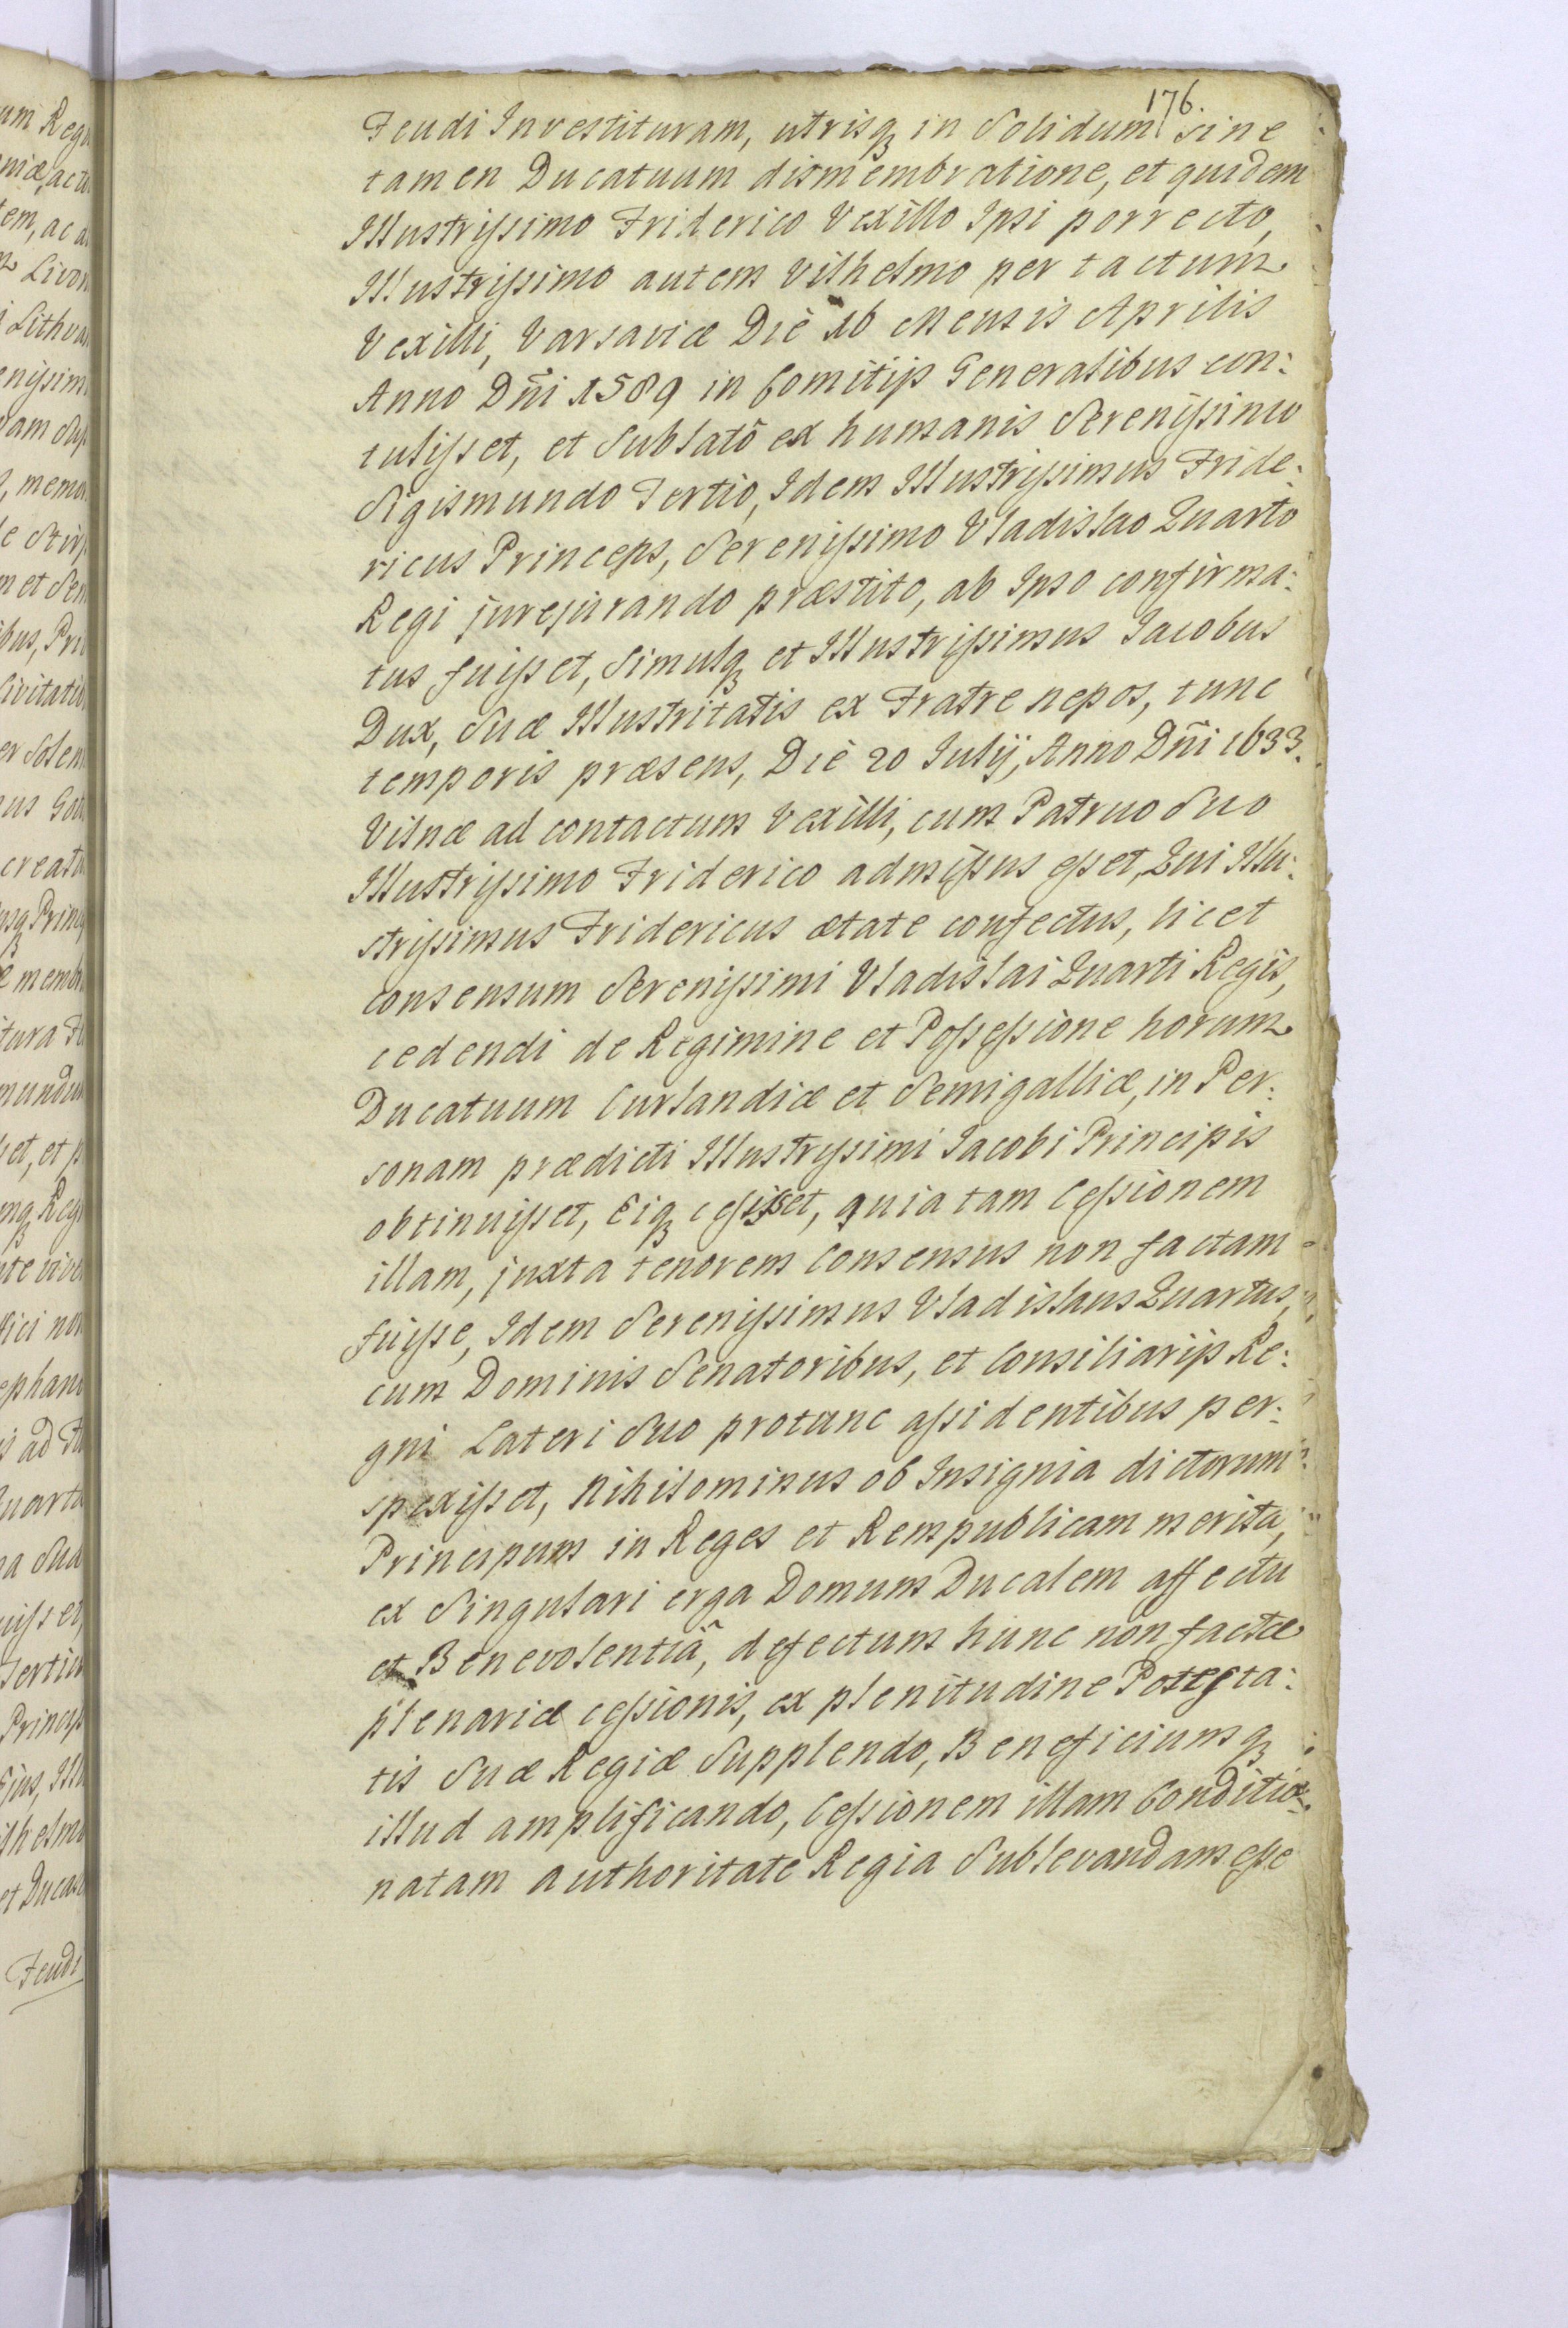 176.
Feudi Investituram, utrisq in Solidum sine
tamen Ducatuum dismembratione, et quidem
Illustrissimo Friderico Vexillo Ipsi porrecto,
Illustrissimo autem Vilhelmo per tactum
Vexilli, Varsaviæ Diè 16 Mensis Aprilis
Anno Dñi 1589 in Comitijs Generalibus con:
tulisset, et Sublatô ex humanis Serenissimo
Sigismundo Tertiò, Idem Illustrissimus Fride:
ricus Princeps, Serenissimo Vladislao Quarto
Regi jurejurando præstito, ab Ipso confirma:
tus fuisset, Simulq et Illustrissimus Iacobus
Dux, Suæ Illustritatis ex Fratre nepos, tunc
temporis præsens, Diè 20 Iulij, Anno Dñi 1633.
Vilnæ ad contactum Vexilli, cum Patruo Suo
Illustrissimo Friderico admissus esset, Qui Illu:
strissimus Fridericus ætate confectus, licet
consensum Serenissimi Vladislai Quarti Regis,
cedendi de Regimine et Possessione horum
Ducatuum Curlandiæ et Semigalliæ, in Per:
sonam prædicti Illustrissimi Iacobi Principis
obtinuisset, Eiq cessisset, quia tam Cessionem
illam, juxta tenorem Consensus non factam
fuisse, Idem Serenissimus Vladislaus Quartus,
cum Dominis Senatoribus, et Consiliarijs Re:
gni Lateri Suo protunc assidentibus per:
spexisset, Nihilominus ob Insignia dictorum
Principum in Reges et Rempublicam merita,
ex Singulari erga Domum Ducalem affectu
et Benevolentiâ, defectum hunc non factæ
plenariæ cessionis, ex plenitudine Potesta:
tis Suæ Regiæ Supplendo, Beneficiumq
illud amplificando, Cessionem illam Conditio:
natam authoritate Regia Sublevandam esse